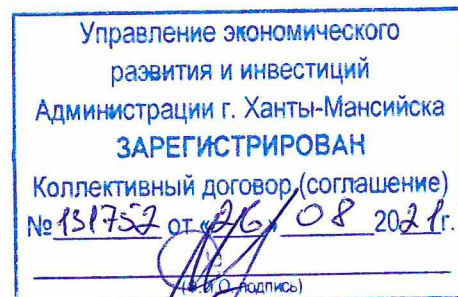 Управление экономического
развития и инвестиций
Администрации г. Ханты-Мансийска
ЗАРЕГИСТРИРОВАН
Коллективный договор (соглашение)
№ 131752 от «26» 08 2021г.
(Ф.И.О. подпись)